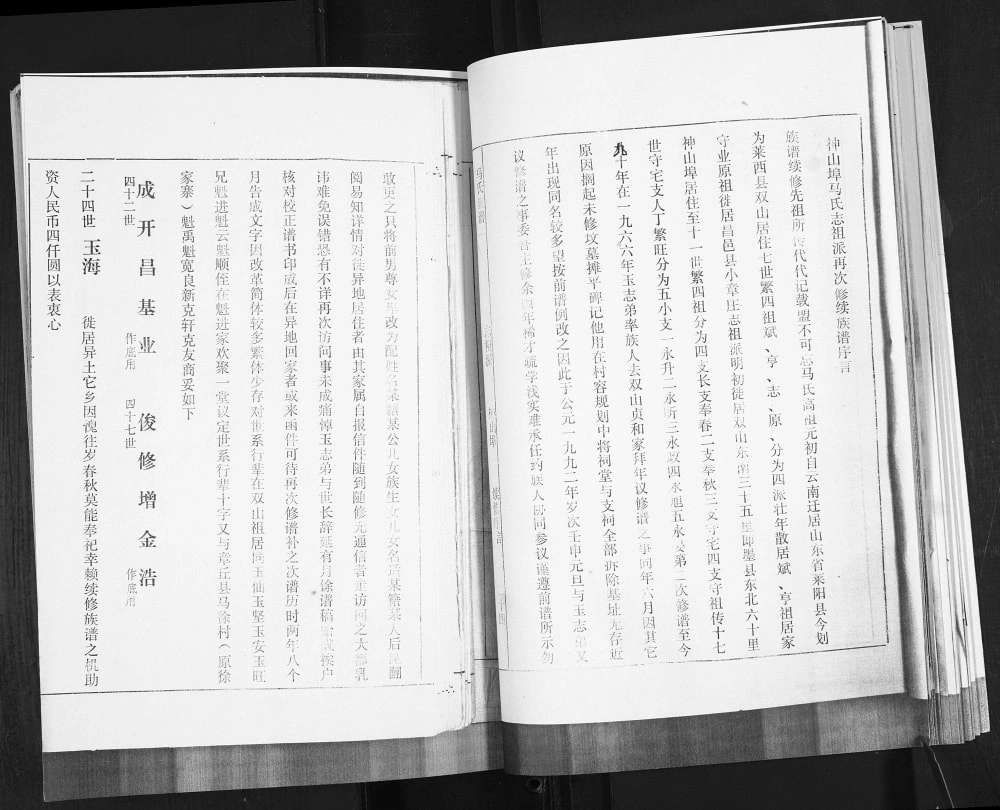 神山埠马氏志祖派再次修续族谱序言
族谱续修先祖所传代代记载盟不可忘马氏高祖元初自云南迁居山东省莱阳县今划
为莱西县双山居住七世繁四祖斌、亨、志、原、分为四派壮年散居斌、亨祖居家
守业原祖徙居昌邑县小章庄志祖派明初徙居双山东南三十五里即墨县东北六十里
神山埠居住至十一世繁四祖分为四支长支奉春二支奉秋三支守宅四支守祖传十七
世守宅支人丁繁旺分为五小支一永升二永昕三永 四永旭五永 第二次修谱至今
九十年在一九六六年玉志弟率族人去双山贞和家拜年议修谱之事同年六月因其它
原因搁起未修坟墓摊平碑记他用在村容规划中将祠堂与支祠全部拆除基址无存近
年出现同名较多望按前谱例改之因此于公元一九九二年岁次壬申元旦与玉志弟又
议修谱之事委吾主修余四年稀才疏学浅实难承任约族人协同参议谨遵前谱所示勿
敢更之只将前男尊女卑改为配姓名某籍某公儿女族生女儿女名适某籍某人后 翻
阅易知详情对徙异地居住者由其家属自报信件随到随修无通信者止访问之大都乳
讳难免误错恐有不详再次访问事未成痛悼玉志弟与世长辞延有月馀谱稿 挨户
核对校正谱书印成后在异地回家者或来函件可待再次修谱补之次谱历时两年八个
月告成文字因改革简体较多繁体少存对世系行辈在双山祖居同玉仙玉坚玉安玉旺
兄魁进魁云魁顺侄在魁进家欢聚一堂议定世系行辈十字又与章丘县马涂村（原徐
家寨）魁禹魁宽良新克轩克友商妥如下
成开昌基业 俊修增金浩
四十二世 作底用 四十七世 作底用
二十四世 玉海 徙居异土它乡因愧往岁春秋莫能奉祀幸赖续修族谱之机助
资人民币四仟圆以表衷心